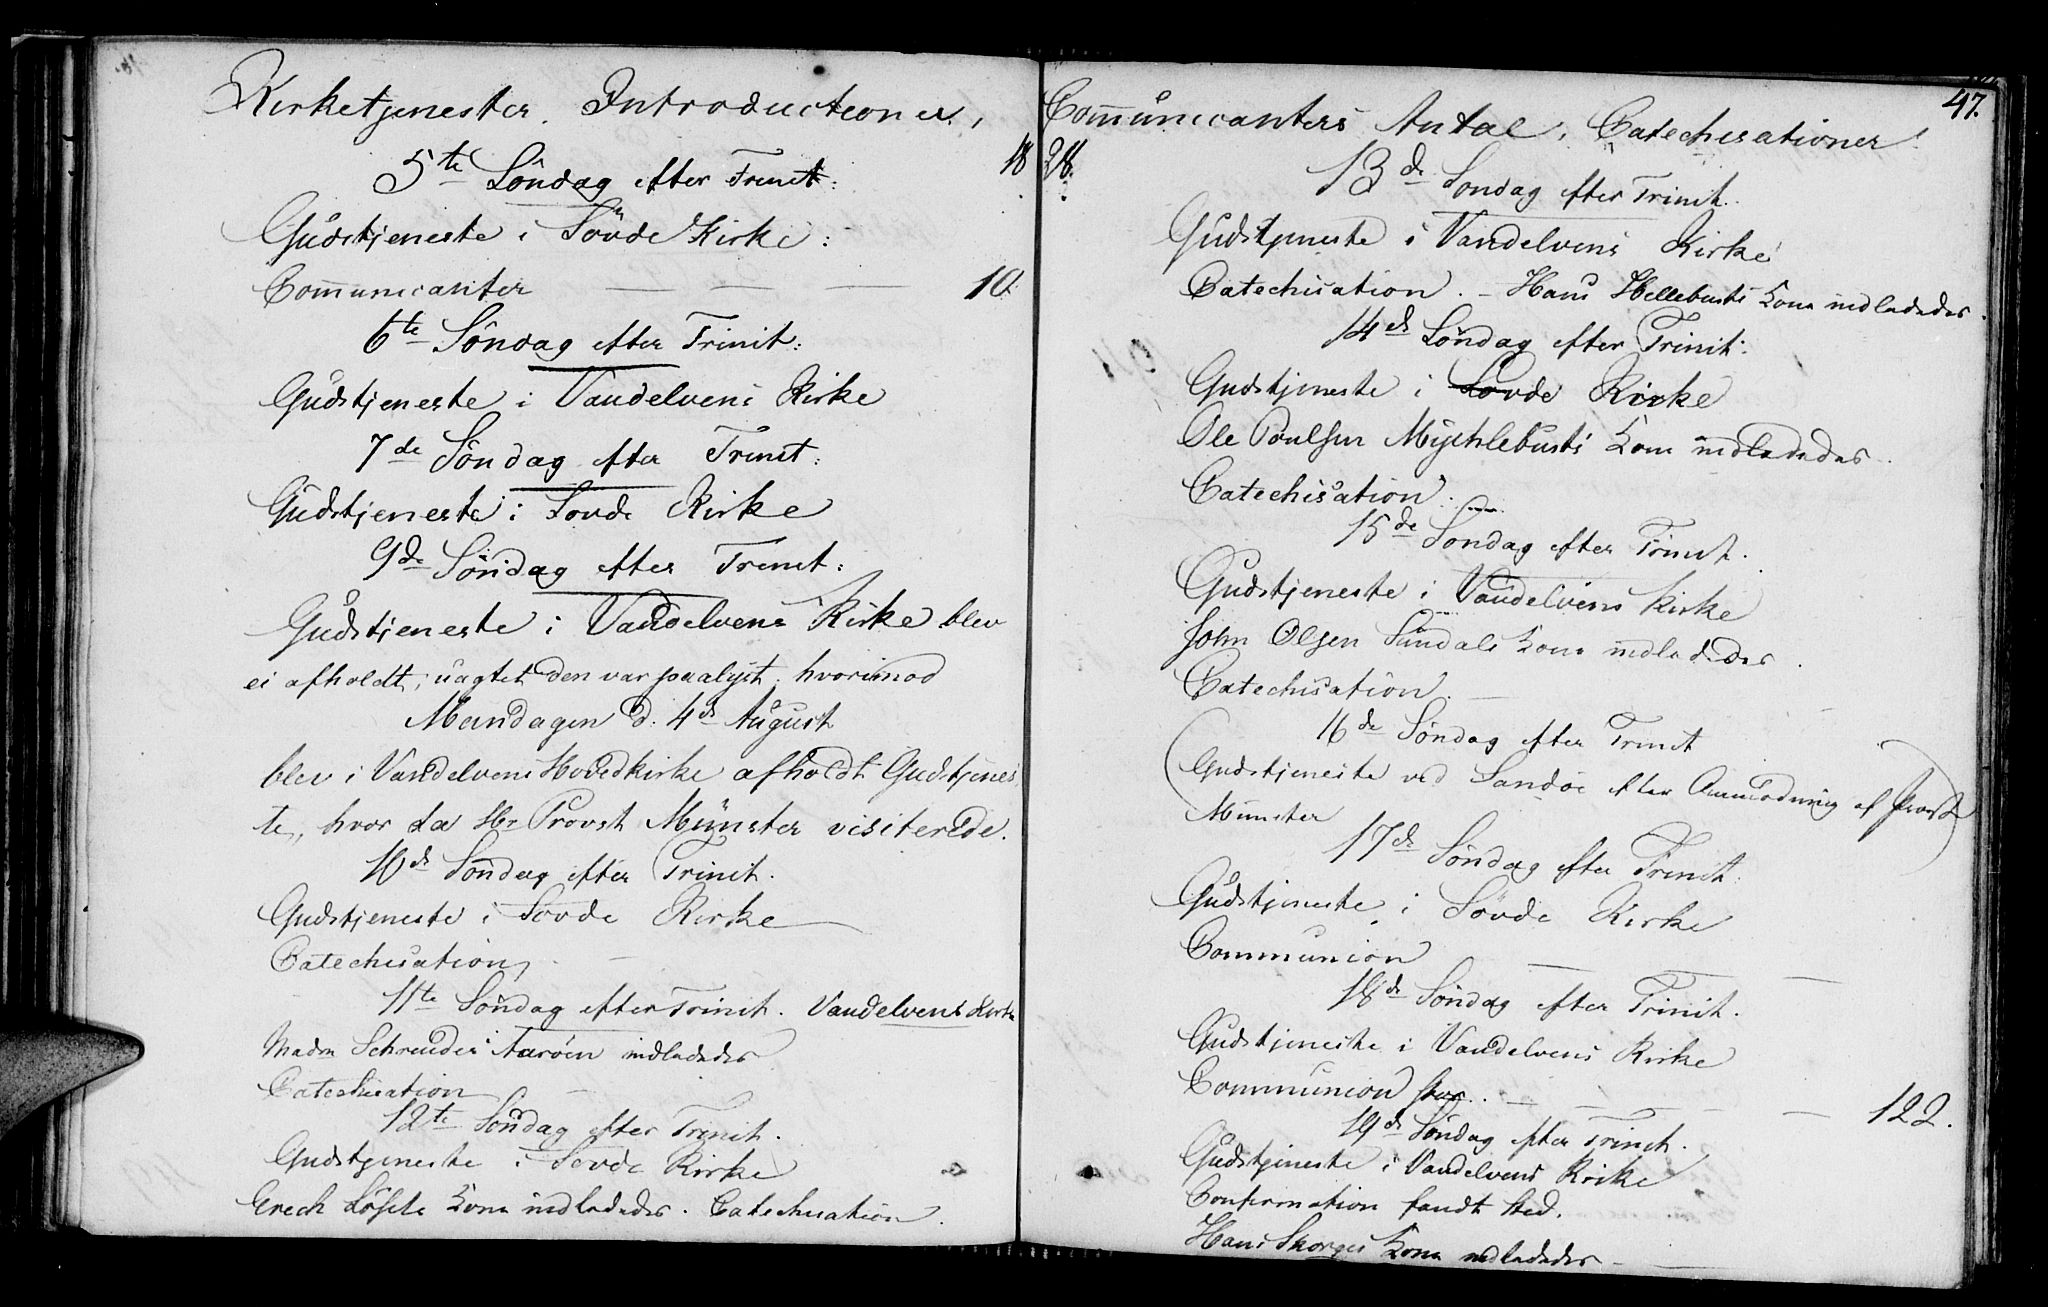 Kirketjenester. Introductioner,
18
5te Söndag efter Trinit:
Gudstjeneste i Sövde Kirke:
Communicanter — — — 10.
6te Söndag efter Trinit:
Gudstjeneste i Vandelvens Kirke
7de Söndag efter Trinit:
Gudstjeneste i Sovde Kirke
9de Söndag efter Trinit:
Gudstjeneste i Vandelvens Kirke blev
ei afholdt, uagtet den var paalyst, hvorimod
Mandagen d. 4de August
blev i Vandelvens Hovedkirke afholdt Gudstjenes
te, hvor da Hr Provst Münster visiterede.
10de Söndag efter Trinit.
Gudstjeneste i Sovde Kirke
Catechisation
11te Söndag efter Trinit. Vandelvens Kirke
Madm Schreuder Aaröen indledades
Catechisation
12te Söndag efter Trinit.
Gudstjeneste i Sovde Kirke
Erech Kone indledades. Catechisation.
47.
Communicanters Antal, Catechisationer
28.
13de Sondag efter Trinit.
Gudstjeneste i Vandelvens Kirke
Catechisation. – Hans Hellebusts Kone indledades.
14de Söndag efter Trinit:
Gudstjeneste i Sovde Kirke
Ole Poulsen Mychlebusts Kone indledades.
Catechisation.
15de Söndag efter Trinit.
Gudstjeneste i Vandelvens Kirke
John Olsen Sundals Kone indledades.
Catechisation.
16de Söndag efter Trinit
(Gudstjeneste ved Sandöe efter Anmodning af Provst
Münster)
17de Söndag efter Trinit.
Gudstjeneste i Sövde Kirke
Communion — — —
18de Söndag efter Trinit.
Gudstjeneste i Vandelvens Kirke
Communion — — — 122.
19de Söndag efter Trinit.
Gudstjeneste i Vandelvens Kirke
Confirmation fandt sted.
Hans Skorges Kone indledades —